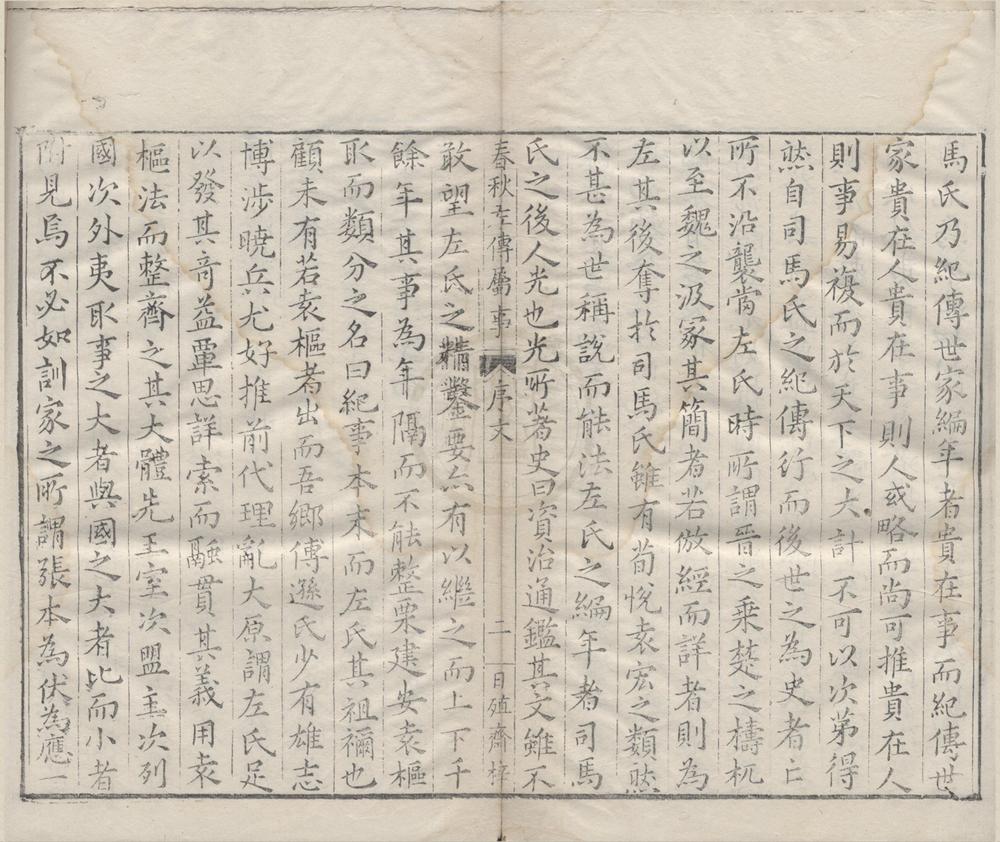 馬氏乃紀傳世家編年者貴在事而紀傳世
家貴在人貴在事則人或略而尚可推貴在人
則事易複而於天下之大計不可以次第得
然自司馬氏之紀傳行而後世之為史者亡
所不沿襲當左氏時所謂晉之乘楚之檮杌
以至魏之汲冢其簡者若倣經而詳者則為
左其後奪於司馬氏雖有荀悅袁宏之類然
不甚為世稱說而能法左氏之編年者司馬
氏之後人光也光所著史曰資治通鑑其文雖不
春秋左傳屬事 序文 二 日殖齋梓
敢望左氏之精鑿要亦有以繼之而上下千
餘年其事為年隔而不能整栗建安袁樞
取而類分之名曰紀事本末而左氏其祖禰也
顧未有若袁樞者出而吾鄉傅遜氏少有雄志
博涉曉兵尤好推前代理亂大原謂左氏足
以發其奇益覃思詳索而融貫其義用袁
樞法而整齊之其大體先王室次盟主次列
國次外夷取事之大者與國之大者比而小者
附見焉不必如訓家之所謂張本為伏為應一